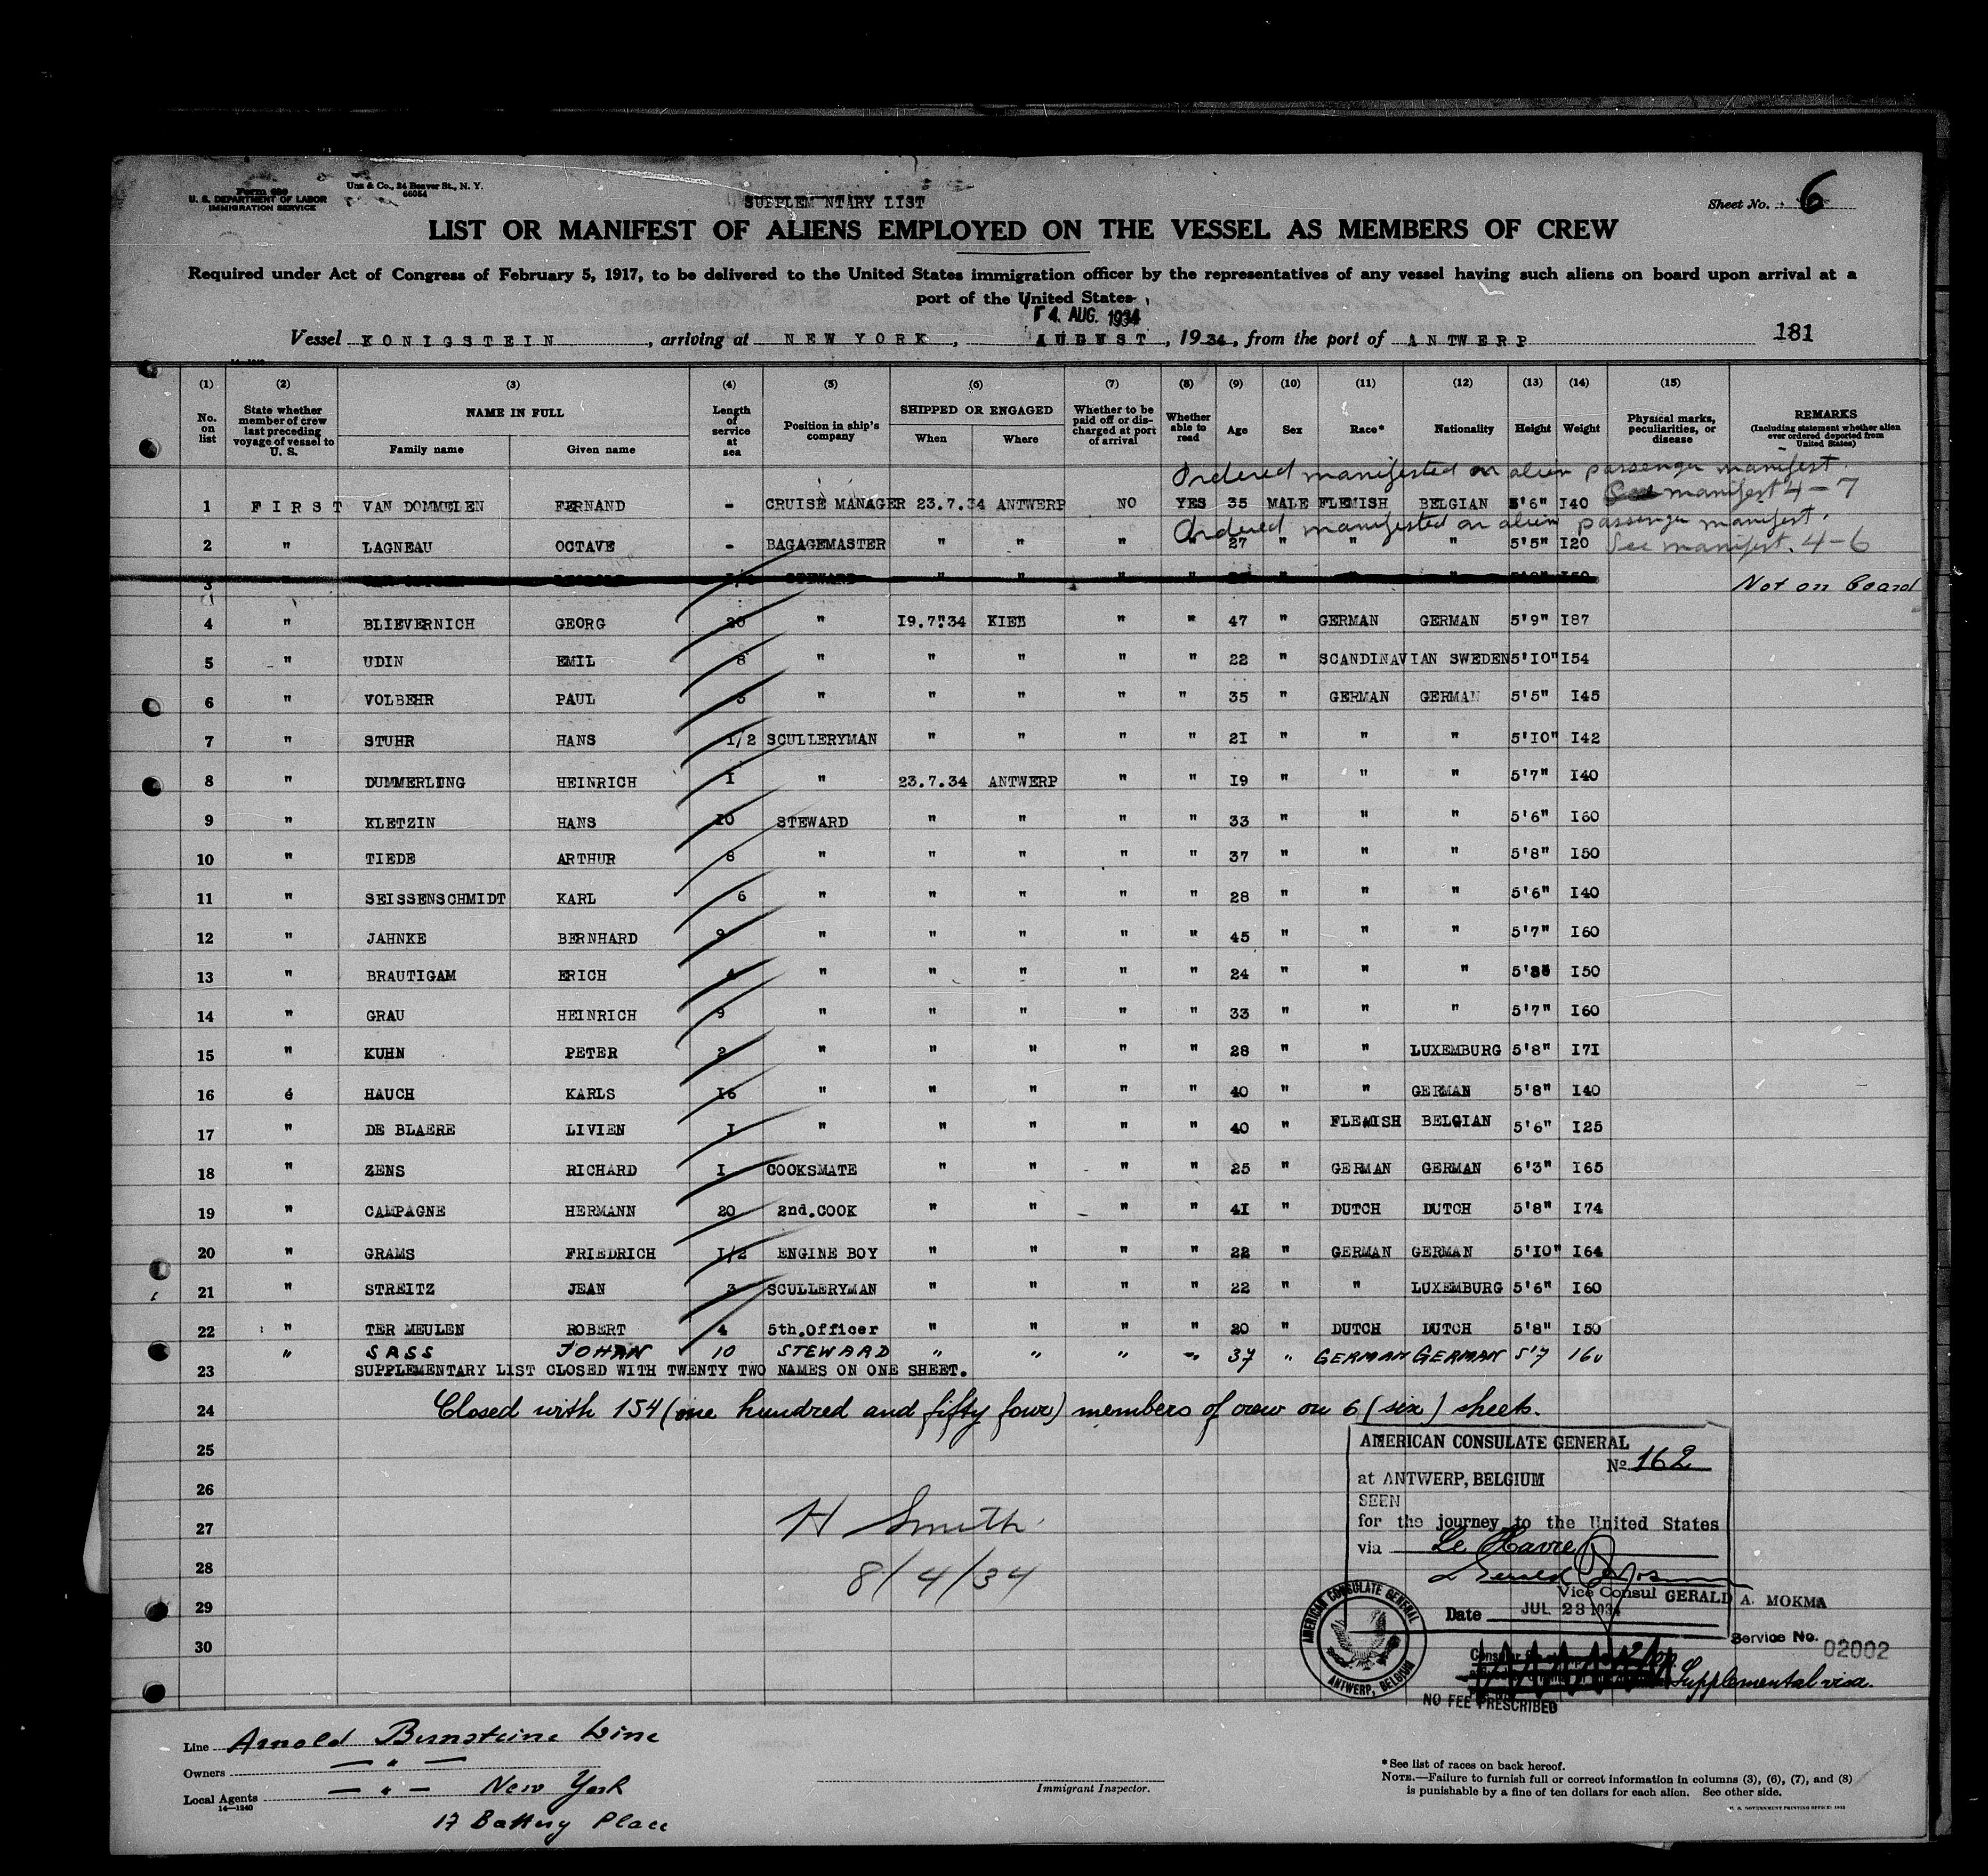 Form 680
U. S. DEPARTMENT OF LABOR
IMMIGRATION SERVICE
Unz & Co., 24 Beaver St., N. Y.
66054
SUPPLEMENTARY LIST
Sheet No. 6
LIST OR MANIFEST OF ALIENS EMPLOYED ON THE VESSEL AS MEMBERS OF CREW
Required under Act of Congress of February 5, 1917, to be delivered to the United States immigration officer by the representatives of any vessel having such aliens on board upon arrival at a
port of the United States
4. AUG. 1934
Vessel KONIGSTEIN, arriving at NEW YORK, AUGUST, 1934, from the port of ANTWERP 181
(1) (2) (3) (4) (5) (6) (7) (8) (9) (10) (11) (12) (13) (14) (15)
No. on list
State whether member of crew last preceding voyage of vessel to U. S.
NAME IN FULL
Family name
Given name
Length of service at sea
Position in ship's company
SHIPPED OR ENGAGED
When
Where
Whether to be paid off or discharged at port of arrival
Whether able to read
Age
Sex
Race*
Nationality
Height
Weight
Physical marks, peculiarities, or disease
REMARKS
(Including statement whether alien ever ordered deported from United States)
Ordered manifested on alien passenger manifest.
See manifest 4-7
1 FIRST VAN DOMMELEN FERNAND - CRUISE MANAGER 23.7.34 ANTWERP NO YES 35 MALE FLEMISH BELGIAN 5'6" I40
Ordered manifested on alien passenger manifest.
2 " LAGNEAU OCTAVE - BAGAGEMASTER " " " " 27 " " " 5'5" I20 See manifest. 4-6
3 STEWARD " " " " " " " Not on board
4 " BLIEVERNICH GEORG 20 " I9.7.34 KIEL " " 47 " GERMAN GERMAN 5'9" I87
5 " UDIN EMIL 8 " " " " " 22 " SCANDINAVIAN SWEDEN 5'I0" I54
6 " VOLBEHR PAUL 3 " " " " " 35 " GERMAN GERMAN 5'5" I45
7 " STUHR HANS I/2 SCULLERYMAN " " " " 2I " " " 5'I0" I42
8 " DUMMERLING HEINRICH I " 23.7.34 ANTWERP " " I9 " " " 5'7" I40
9 " KLETZIN HANS I0 STEWARD " " " " 33 " " " 5'6" I60
10 " TIEDE ARTHUR 8 " " " " " 37 " " " 5'8" I50
11 " SEISSENSCHMIDT KARL 6 " " " " " 28 " " " 5'6" I40
12 " JAHNKE BERNHARD 9 " " " " " 45 " " " 5'7" I60
13 " BRAUTIGAM ERICH 4 " " " " " 24 " " " 5'8" I50
14 " GRAU HEINRICH 9 " " " " " 33 " " " 5'7" I60
15 " KUHN PETER 2 " " " " " 28 " " LUXEMBURG 5'8" I7I
16 é HAUCH KARLS I6 " " " " " 40 " " GERMAN 5'8" I40
17 " DE BLAERE LIVIEN I " " " " " 40 " FLEMISH BELGIAN 5'6" I25
18 " ZENS RICHARD I COOKSMATE " " " " 25 " GERMAN GERMAN 6'3" I65
19 " CAMPAGNE HERMANN 20 2nd.COOK " " " " 4I " DUTCH DUTCH 5'8" I74
20 " GRAMS FRIEDRICH I/2 ENGINE BOY " " " " 22 " GERMAN GERMAN 5'I0" I64
21 " STREITZ JEAN 3 SCULLERYMAN " " " " 22 " " LUXEMBURG 5'6" I60
22 " TER MEULEN ROBERT 4 5th.Officer " " " " 20 " DUTCH DUTCH 5'8" I50
" SASS JOHAN 10 STEWARD " " " " 37 " GERMAN GERMAN 5'7 160
23 SUPPLEMENTARY LIST CLOSED WITH TWENTY TWO NAMES ON ONE SHEET.
24 Closed with 154 (one hundred and fifty four) members of crew on 6 (six) sheets.
25
26
27
28
29
30
H Smith
8/4/34
AMERICAN CONSULATE GENERAL
No 162
at ANTWERP, BELGIUM
SEEN
for the journey to the United States
via Le Havre
Vice Consul GERALD A. MOKMA
Date JUL 23 1934
Service No. 02002
AMERICAN CONSULATE GENERAL
ANTWERP, BELGIUM
Supplemental visa.
NO FEE PRESCRIBED
Line Arnold Bernsteine Line
Owners — " —
Local Agents — " — New York
14—1240
17 Battery Place
Immigrant Inspector.
*See list of races on back hereof.
NOTE.—Failure to furnish full or correct information in columns (3), (6), (7), and (8)
is punishable by a fine of ten dollars for each alien. See other side.
U. S. GOVERNMENT PRINTING OFFICE: 1932